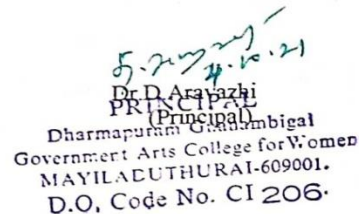 4.10.21
Dr.D.Aravazhi
PRINCIPAL
(Principal)
Dharmapuram Gnanambigai
Government Arts College for Women
MAYILADUTHURAI-609001.
D.O, Code No. CI 206.